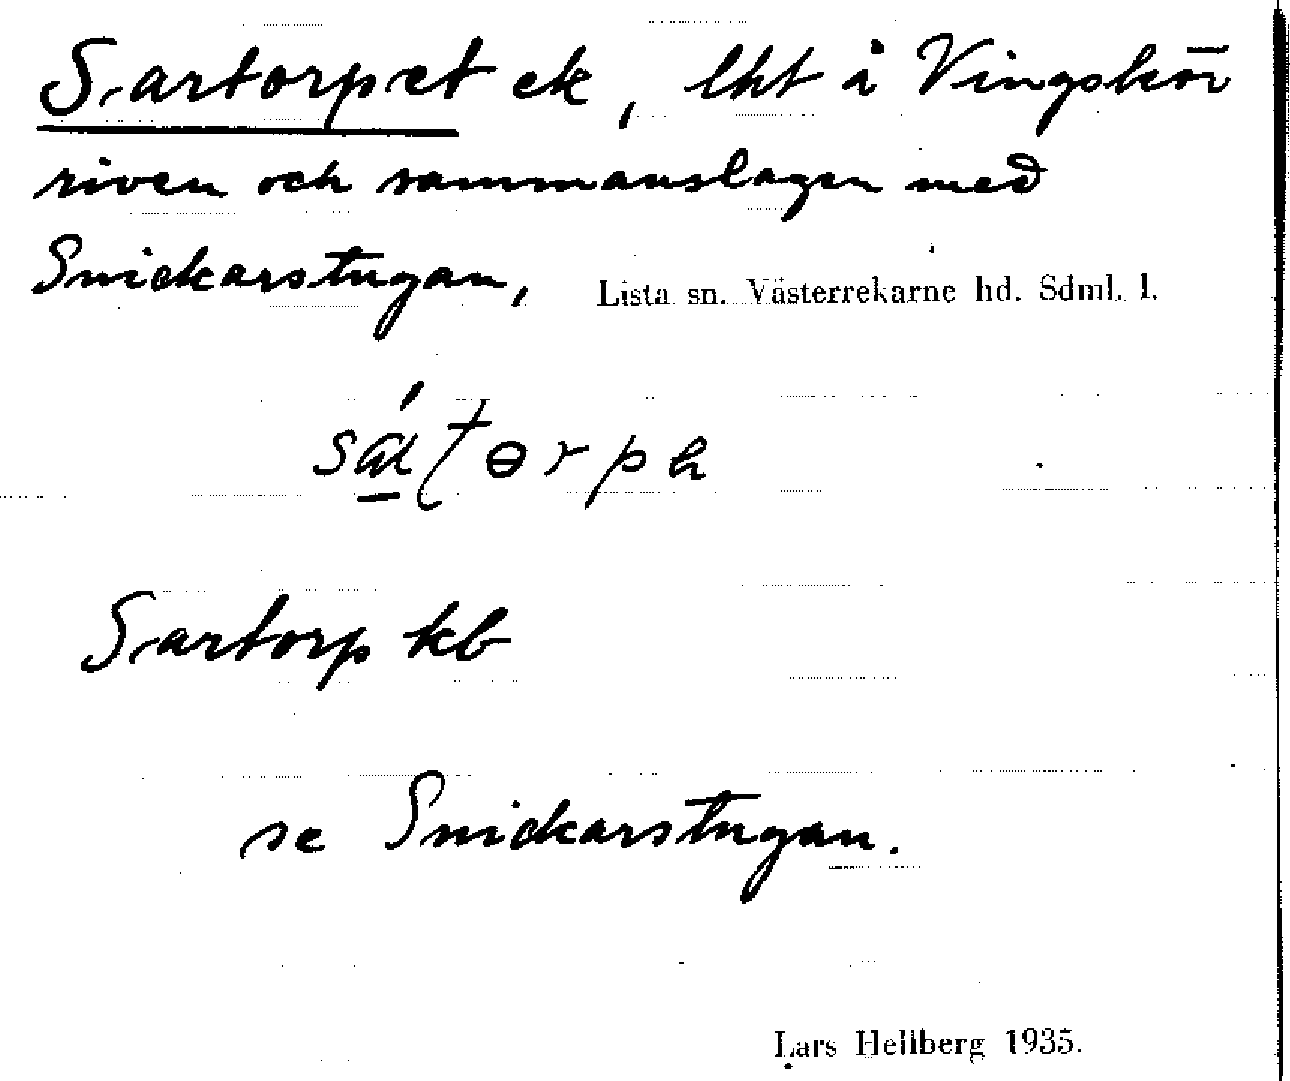 Sartorpet ek, lht å Vingskör
riven och sammanslagen med
Snickarstugan, Lista sn. Västerrekarne hd. Sdml. l.
Sartorp kb
se Snickarstugan.
Lars Hellberg 1935.